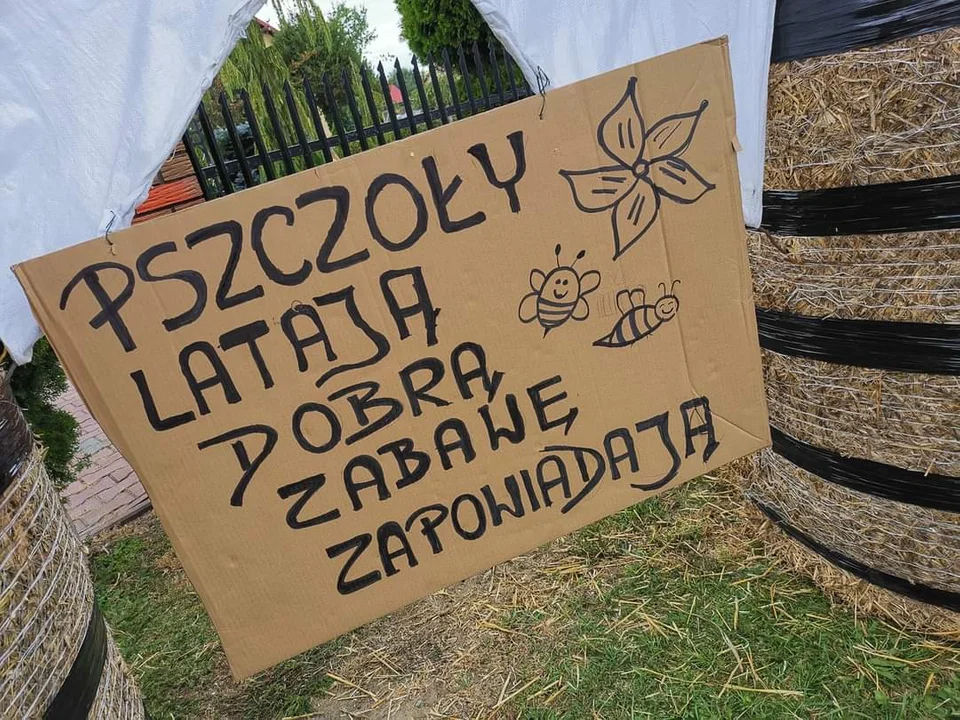 PSZCZOŁY
LATAJĄ
DOBRĄ
ZABAWĘ
ZAPOWIADAJĄ